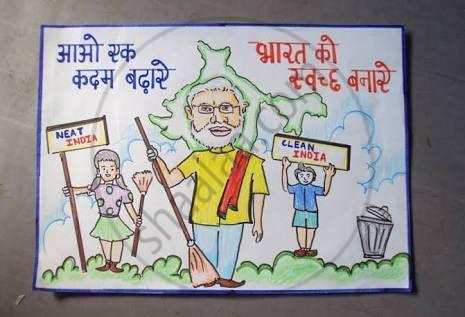 आओ एक
कदम बढ़ाये
भारत को
स्वच्छ बनाये
NEAT
INDIA
CLEAN
INDIA
shaalaa.com